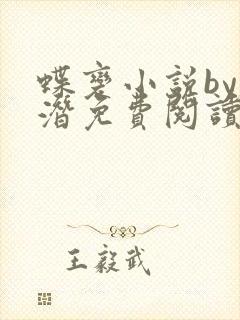 蝶变小说by
潜免費閱讀
王毅武